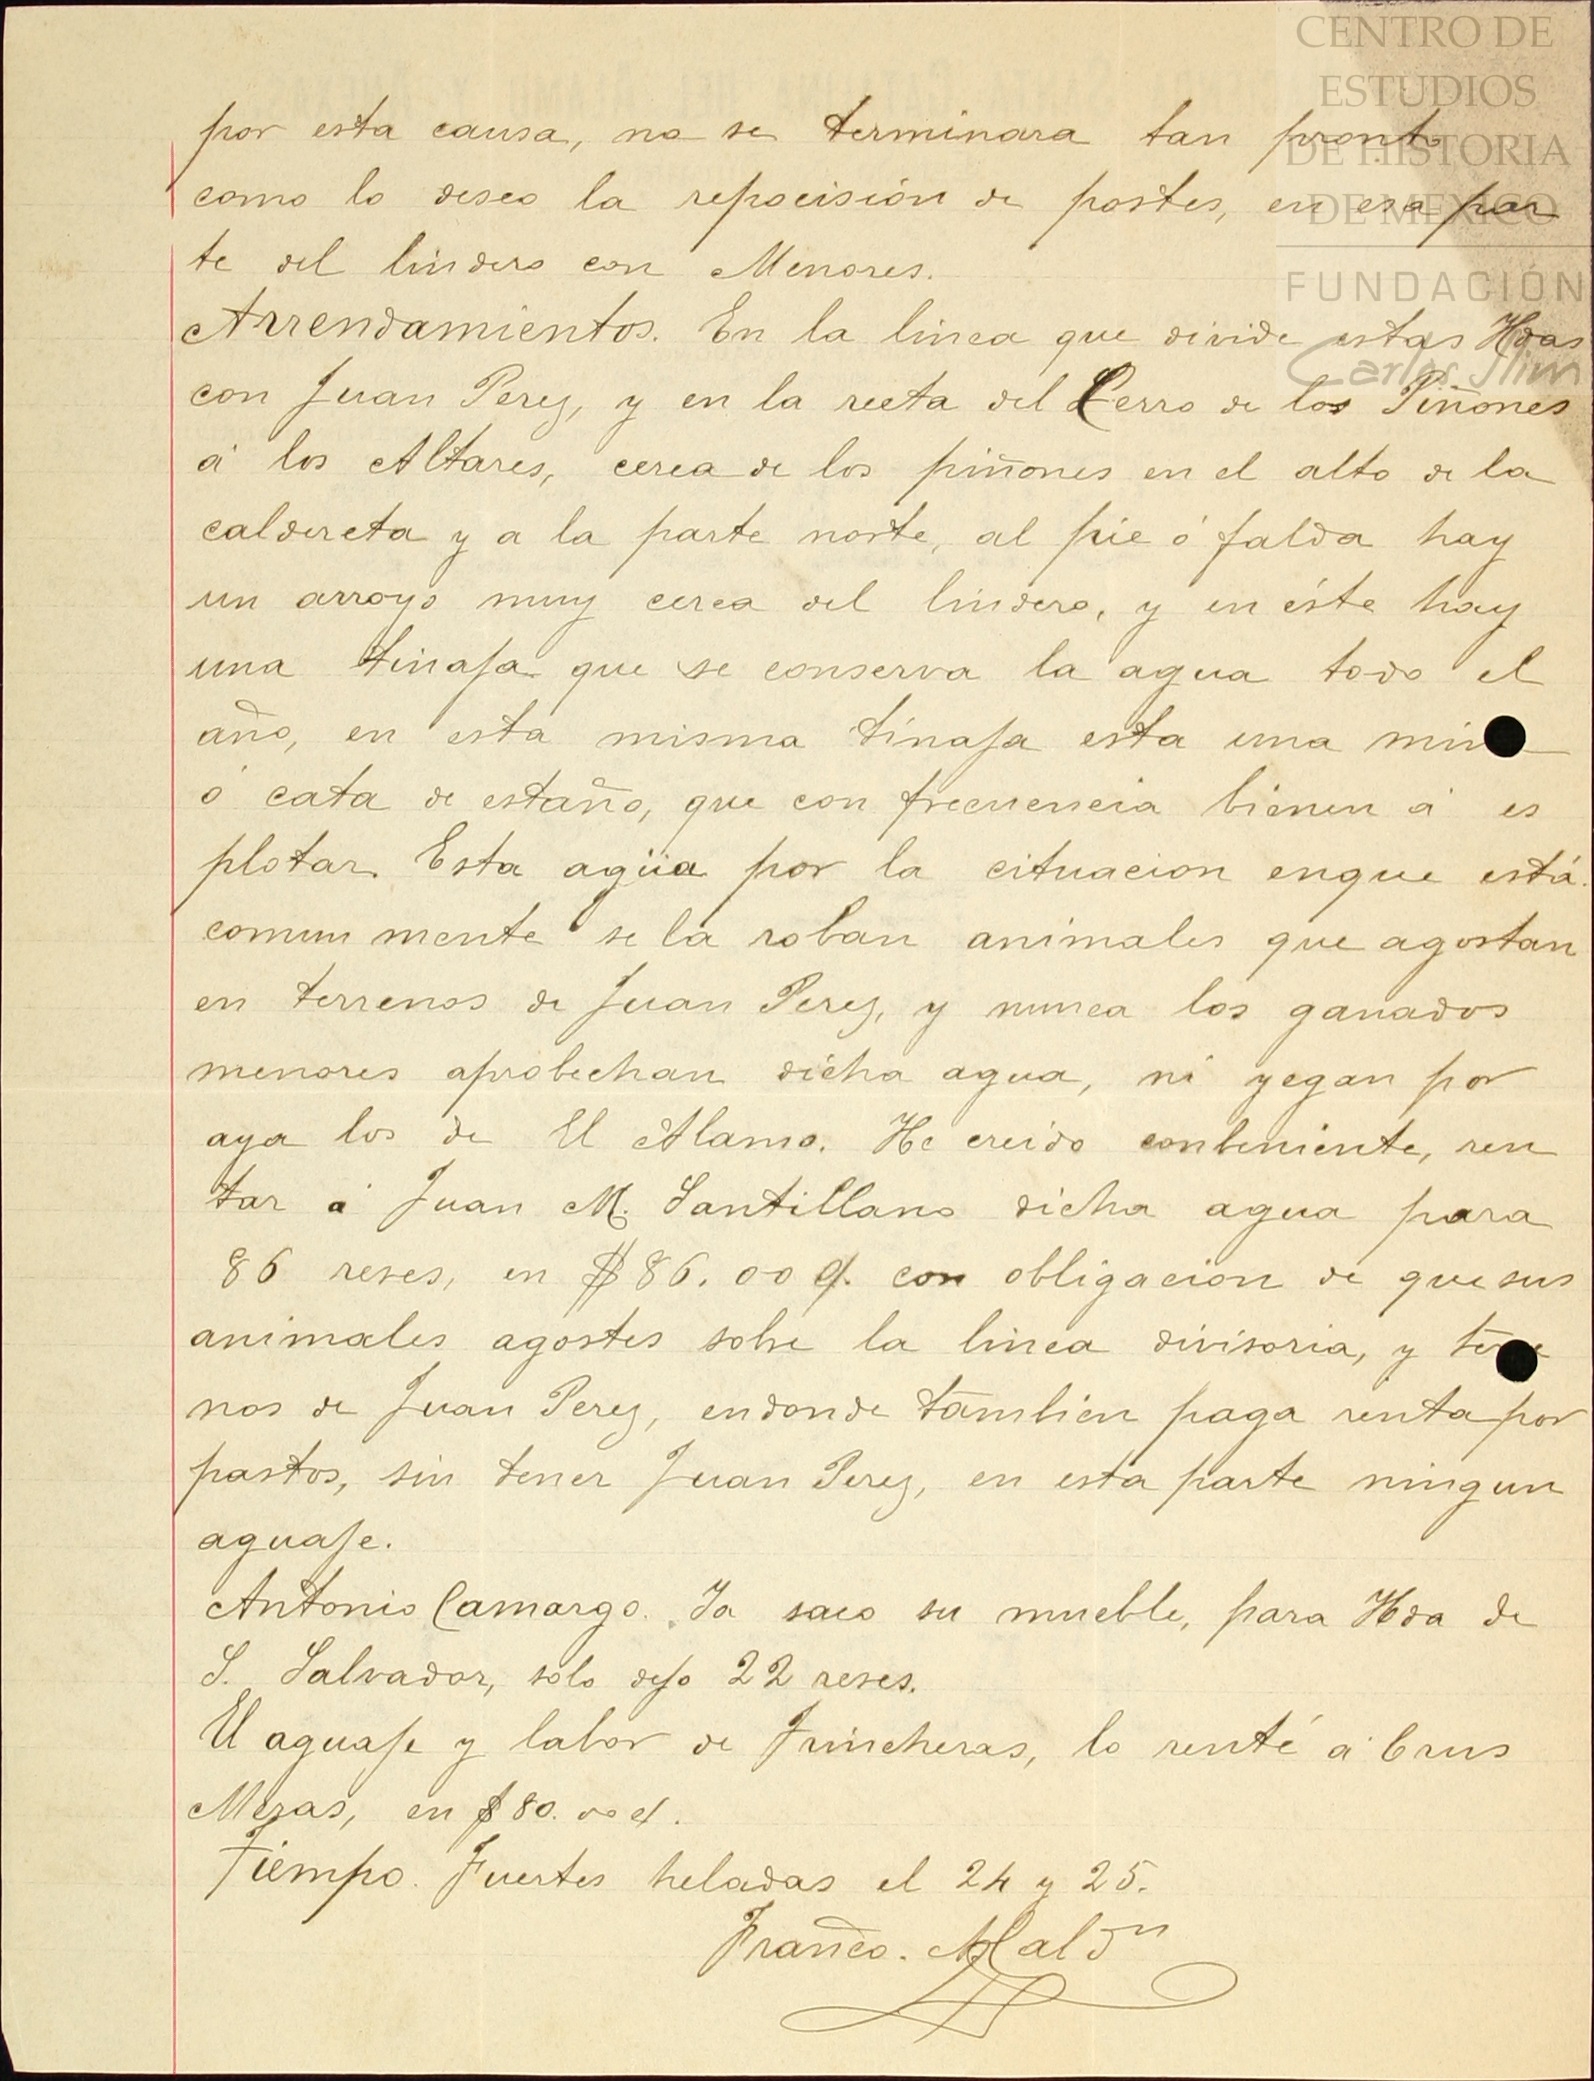 CENTRO DE
ESTUDIOS
DE HISTORIA
DE MEXICO
FUNDACIÓN
Carlos Slim
por esta causa, no se terminara tan pronto
como lo deseo la repocisión de postes, en esa par
te del lindero con Menores.
Arrendamientos. En la linea que divide estas Hdas
con Juan Perez, y en la recta del Cerro de los Piñones
á los Altares, cerca de los piñones en el alto de la
caldereta y a la parte norte, al pie ó falda hay
un arroyo muy cerca del lindero, y en éste hay
una tinaja que se conserva la agua todo el
año, en esta misma tinaja esta una mina
ó cata de estaño, que con frecuencia bienen á es
plotar. Esta agüa por la cituacion enque está
comun mente se la roban animales que agostan
en terrenos de Juan Perez, y nunca los ganados
menores aprobechan dicha agua, ni yegan por
aya los de El Alamo. He creido conbeniente, ren
tar á Juan M. Santillano dicha agua para
86 reses, en $86.00 c/. con obligacion de que sus
animales agostes sobre la linea divisoria, y terre
nos de Juan Perez, endonde tambien paga renta por
pastos, sin tener Juan Perez, en esta parte ningun
aguaje.
Antonio Camargo. Ya saco su mueble, para Hda de
S. Salvador, solo dejo 22 reses.
El aguaje y labor de Trincheras, lo renté á Crus
Mezas, en $80.00 c/.
Tiempo. Fuertes heladas el 24 y 25.
Franco. Maldn